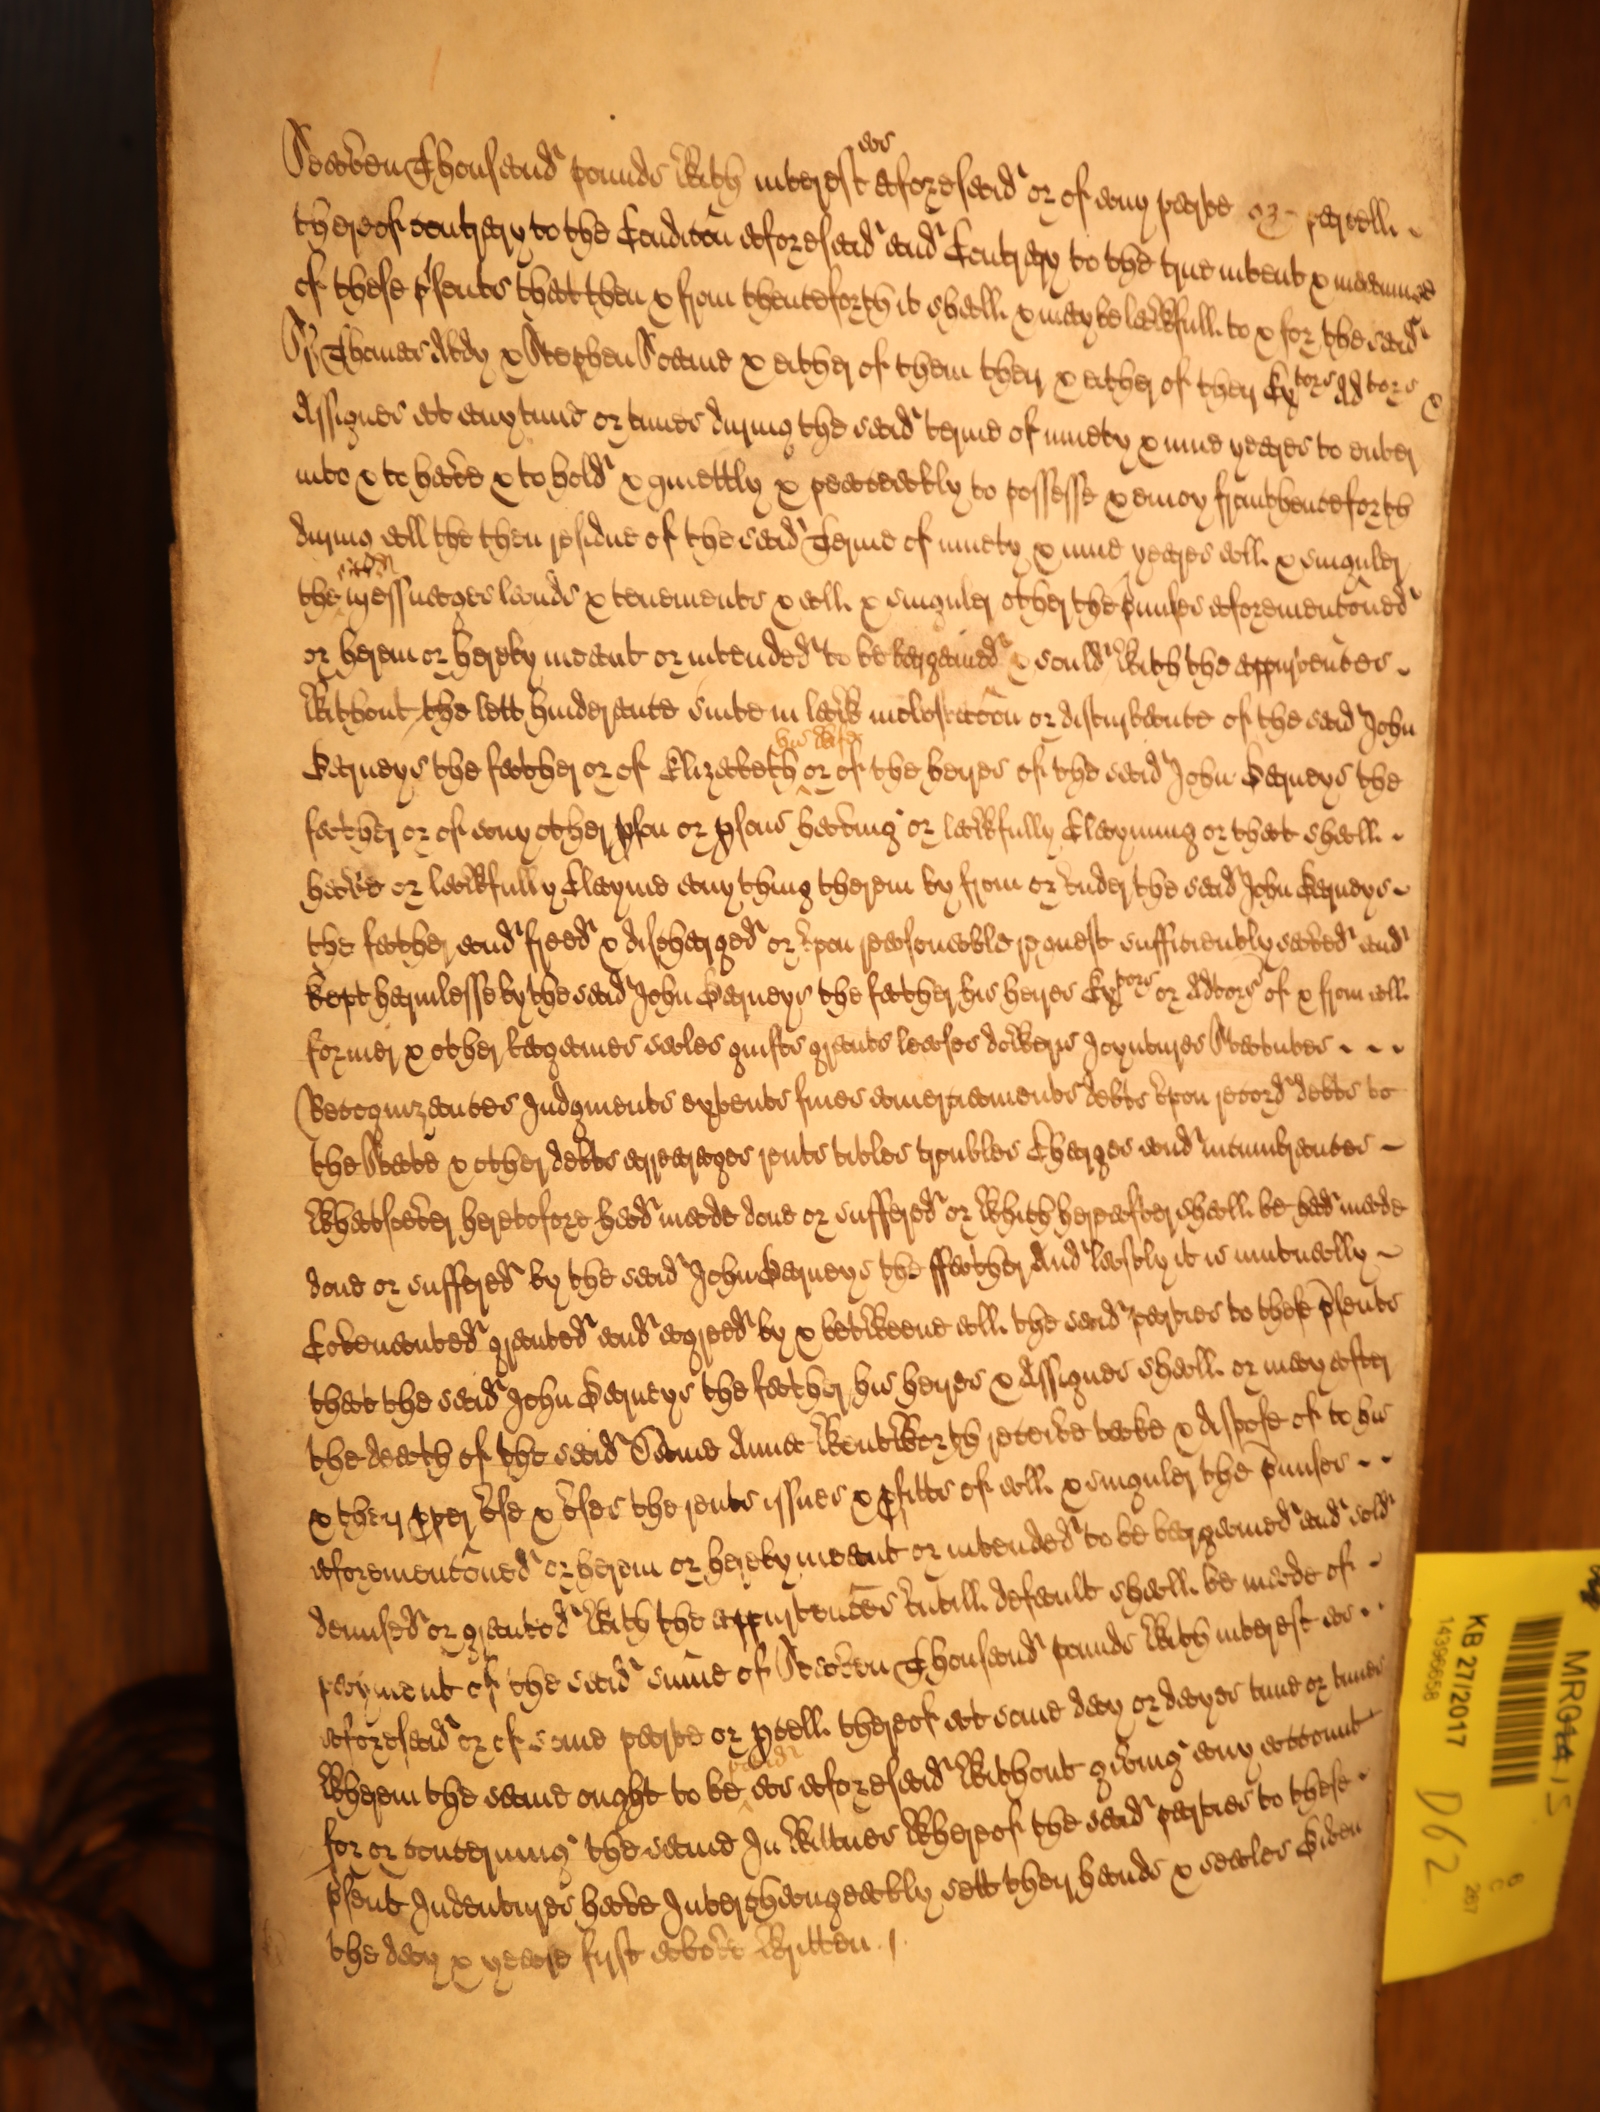 Seaven Thousand pounds with interest as aforesaid or of any parte or parcell
thereof contrary to the Condicōn aforesaid and Contrary to the true intent & meaninge
of these p̱sents that then & from thenceforth it shall & may be lawfull to & for the said
Sr Thomas Abdy & Stephen Soame & either of them their & either of their Extors Adtors &
Assignes at any time or times during the said terme of ninety & nine yeares to enter
into & to have & to hold & quiettly & peaceably to possesse & enioy from thenceforth
during all the then residue of the said Terme of ninety & nine yeares all & singuler
the said Messuages lands & tenements & all & singuler other the p̱misses aforemencōned
or herein or hereby meant or intended to be bargained & sould with the appurtenñces
Without the lett hinderance suite in law molestacōn or disturbance of the said John
Carneys the father or of Elizabeth his wife or of the heyres of the said John Carneys the
father or of any other p̱son or p̱sons having or lawfully Clayming or that shall
have or lawfully Clayme any thing therein by from or under the said John Carneys
the father and freed & discharged or upon reasonable request sufficiently saved and
kept harmlesse by the said John Carneys the father his heyres Extors or Adtors of & from all
former & other bargaines sales guifts grants leases dowers Joyntures Statutes
Recognizances Judgments extents fines amerciaments debts upon record debts to
the State & other debts arrearages rents titles troubles Charges and incumbrances
Whatsoever heretofore had made done or suffered or which hereafter shall be had made
done or suffered by the said John Carneys the ffather And lastly it is mutually
Covenanted granted and agreed by & betweene all the said parties to these p̱sents
that the said John Carneys the father his heyres & Assignes shall or may after
the death of the said Dame Anne Wentworth receive take & dispose of to his
& their p̱per use & uses the rents issues & p̱fitts of all & singuler the p̱misses
aforemencōned or herein or hereby meant or intended to be bargained and sold
demised or granted with the appurtenñces untill default shall be made of
payment of the said sum̄e of Seaven Thousand pounds with interest as
aforesaid or of some parte or p̱cell thereof att some day or dayes time or times
Wherein the same ought to be paid as aforesaid without giving any account
for or concerning the same In Wittnes Whereof the said parties to these
p̱sent Indentures have Interchangeably sett their hands & seales Given
the day & yeare first above written
MRG14 15
KB 27/2017
14396658
D62
6
C
267